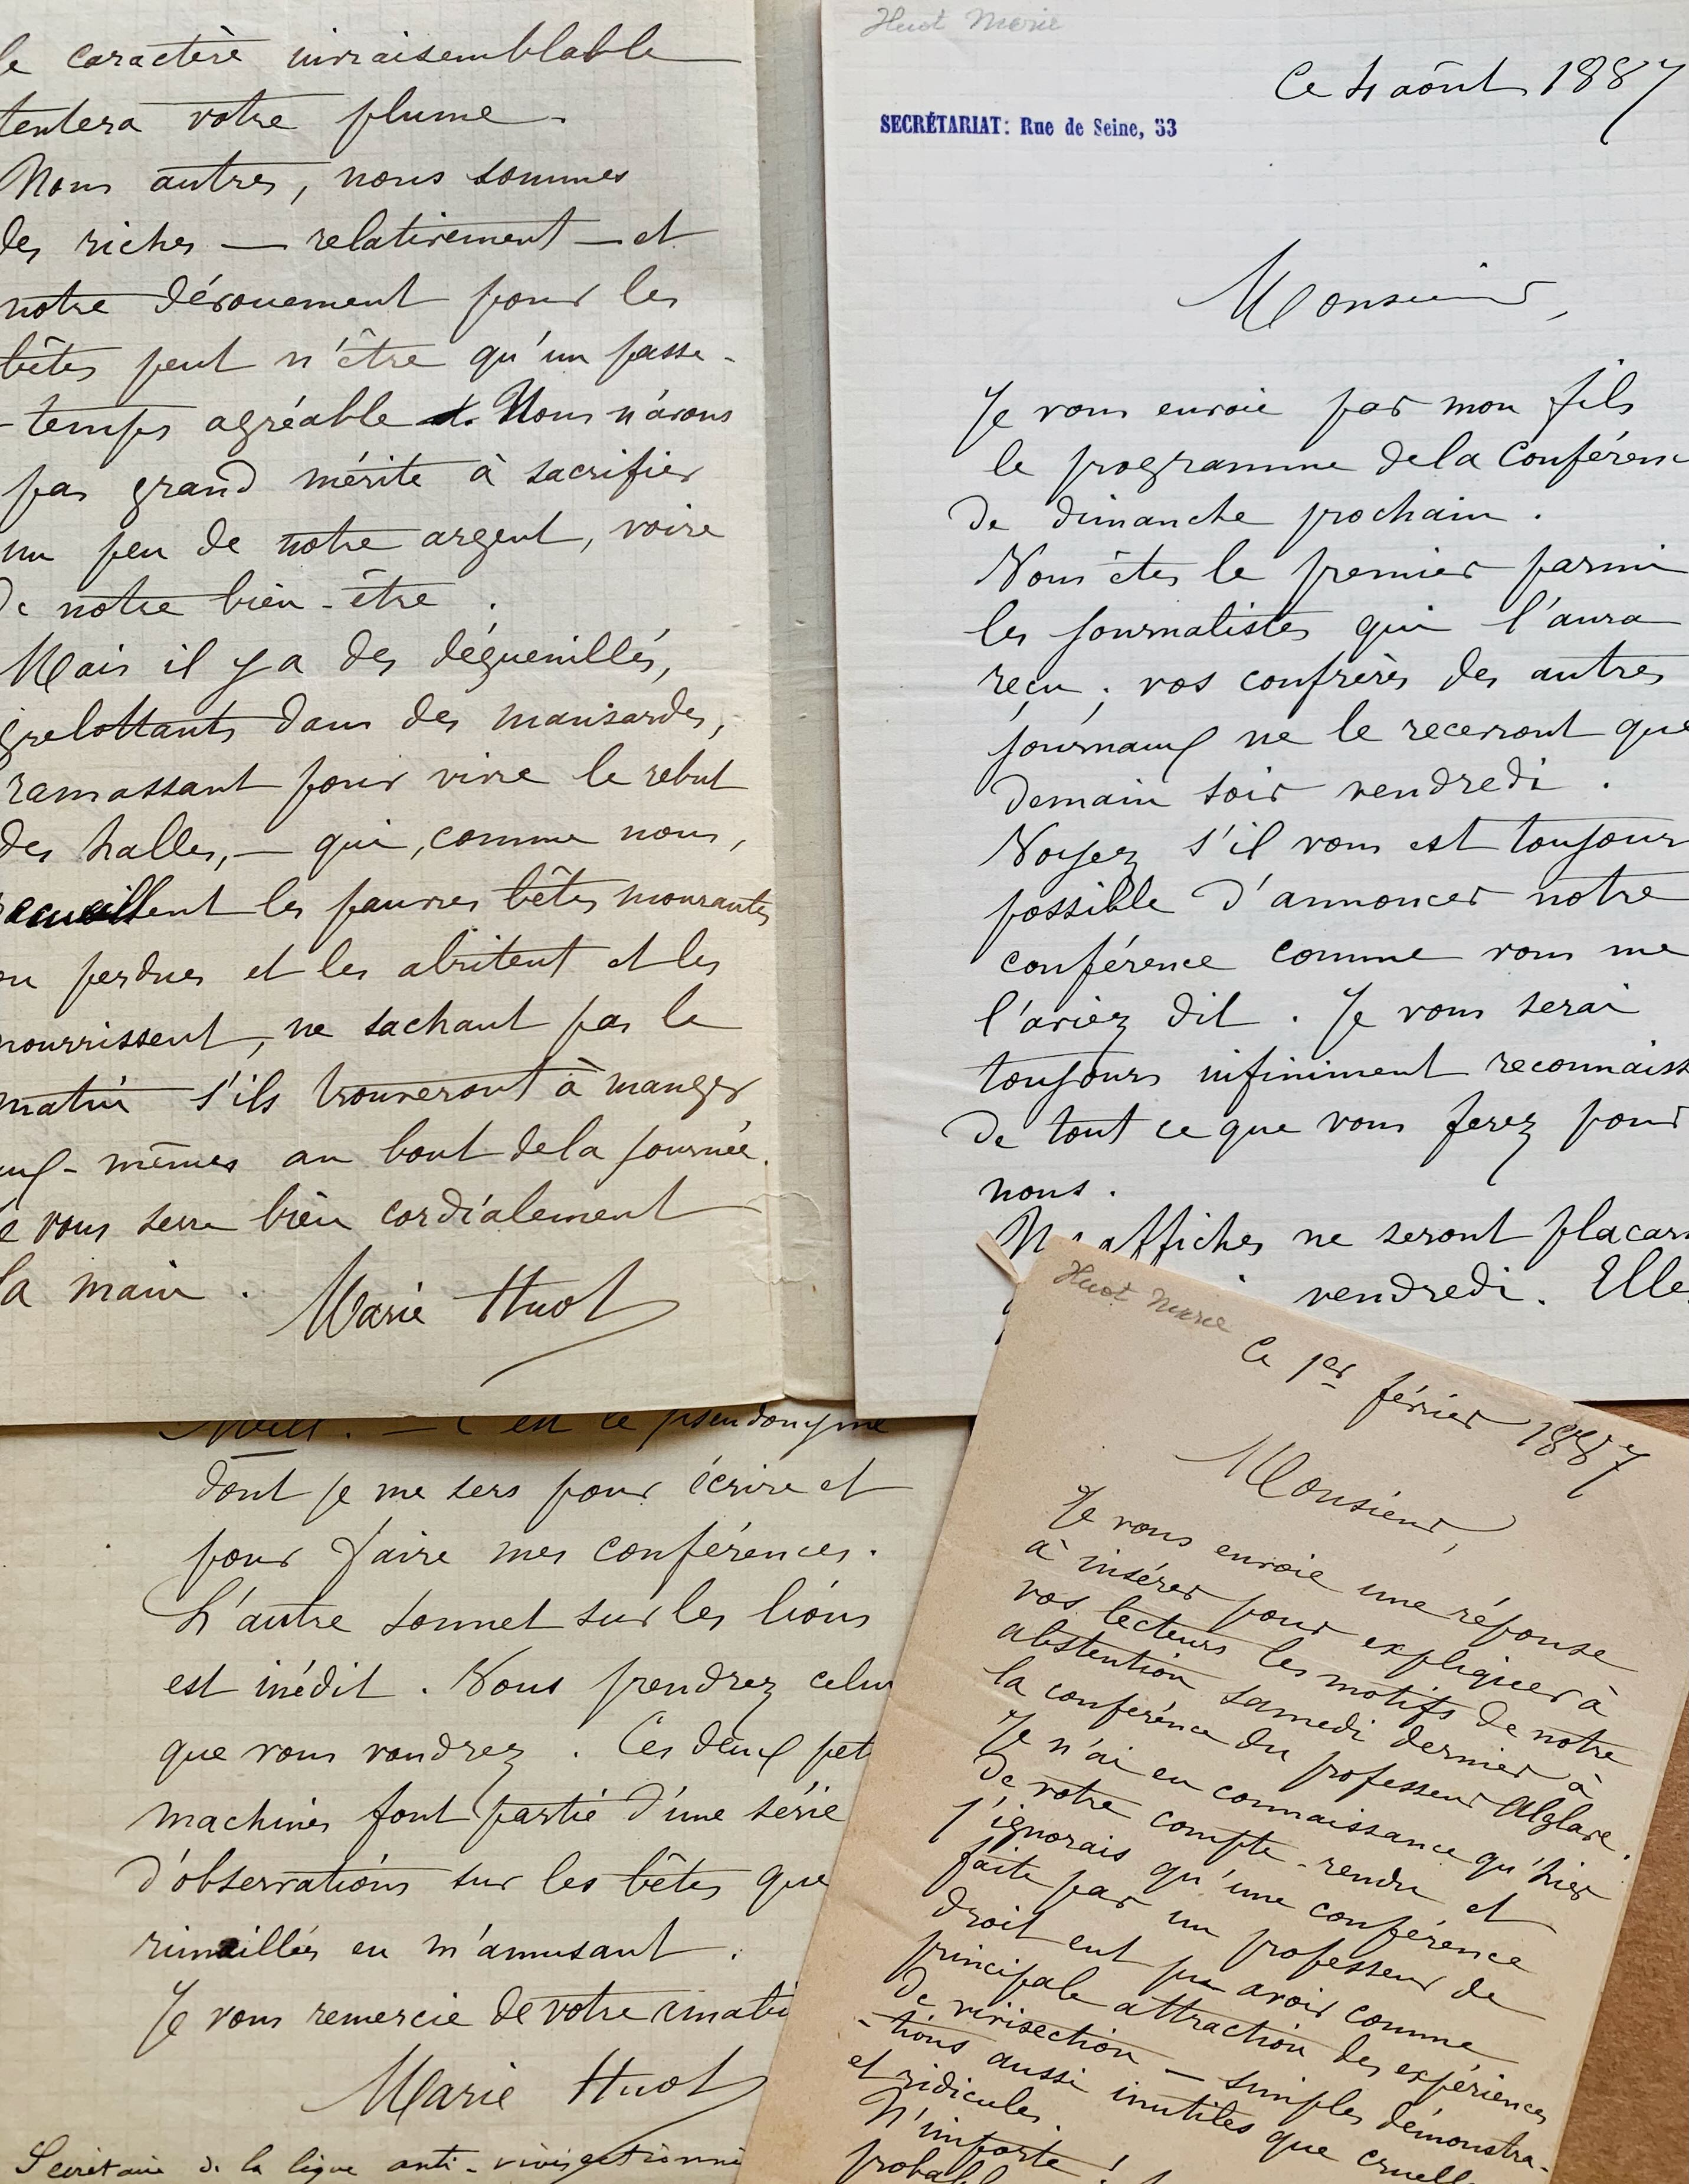 le caractère invraisemblable
tentera votre plume.
Nous autres, nous sommes
des riches — relativement — et
notre dévouement pour les
bêtes peut n'être qu'un passe-
-temps agréable. Nous n'avons
pas grand mérite à sacrifier
un peu de notre argent, voire
de notre bien-être.
Mais il y a des déguenillés,
grelottants dans des mansardes,
ramassant pour vivre le rebut
des halles, — qui, comme nous,
recueillent les pauvres bêtes mourantes
ou perdues et les abritent et les
nourrissent, ne sachant pas le
matin s'ils trouveront à manger
eux-mêmes au bout de la journée.
Je vous serre bien cordialement
la main.
Marie Huot
Huot Marie
Ce 4 août 1887
SECRÉTARIAT: Rue de Seine, 53
Monsieur,
Je vous envoie par mon fils
le programme de la Conférenc
de dimanche prochain.
Vous êtes le premier parmi
les journalistes qui l'aura
reçu; vos confrères des autres
journaux ne le recevront que
demain soir vendredi.
Voyez s'il vous est toujours
possible d'annoncer notre
conférence comme vous me
l'aviez dit. Je vous serai
toujours infiniment reconnaiss
de tout ce que vous ferez pour
nous.
Nos affiches ne seront placar
vendredi. Elle
C'est le pseudonyme
dont je me sers pour écrire et
pour faire mes conférences.
L'autre sonnet sur les lions
est inédit. Vous prendrez celui
que vous voudrez. Ces deux pet
machines font partie d'une série
d'observations sur les bêtes que
rimaillées en m'amusant.
Je vous remercie de votre amabi
Marie Huot
Secrétaire de la ligue anti-vivisectionni
Huot Marie
Ce 1er février 1887
Monsieur,
Je vous envoie une réponse
à insérer pour expliquer à
vos lecteurs les motifs de notre
abstention samedi dernier à
la conférence du professeur Alglave.
Je n'ai eu connaissance qu'hier
de votre compte-rendu et
j'ignorais qu'une conférence
faite par un professeur de
droit eut pu avoir comme
principale attraction des expériences
de vivisection — simples démonstra-
-tions aussi inutiles que cruell
et ridicules.
N'importe!
probabl